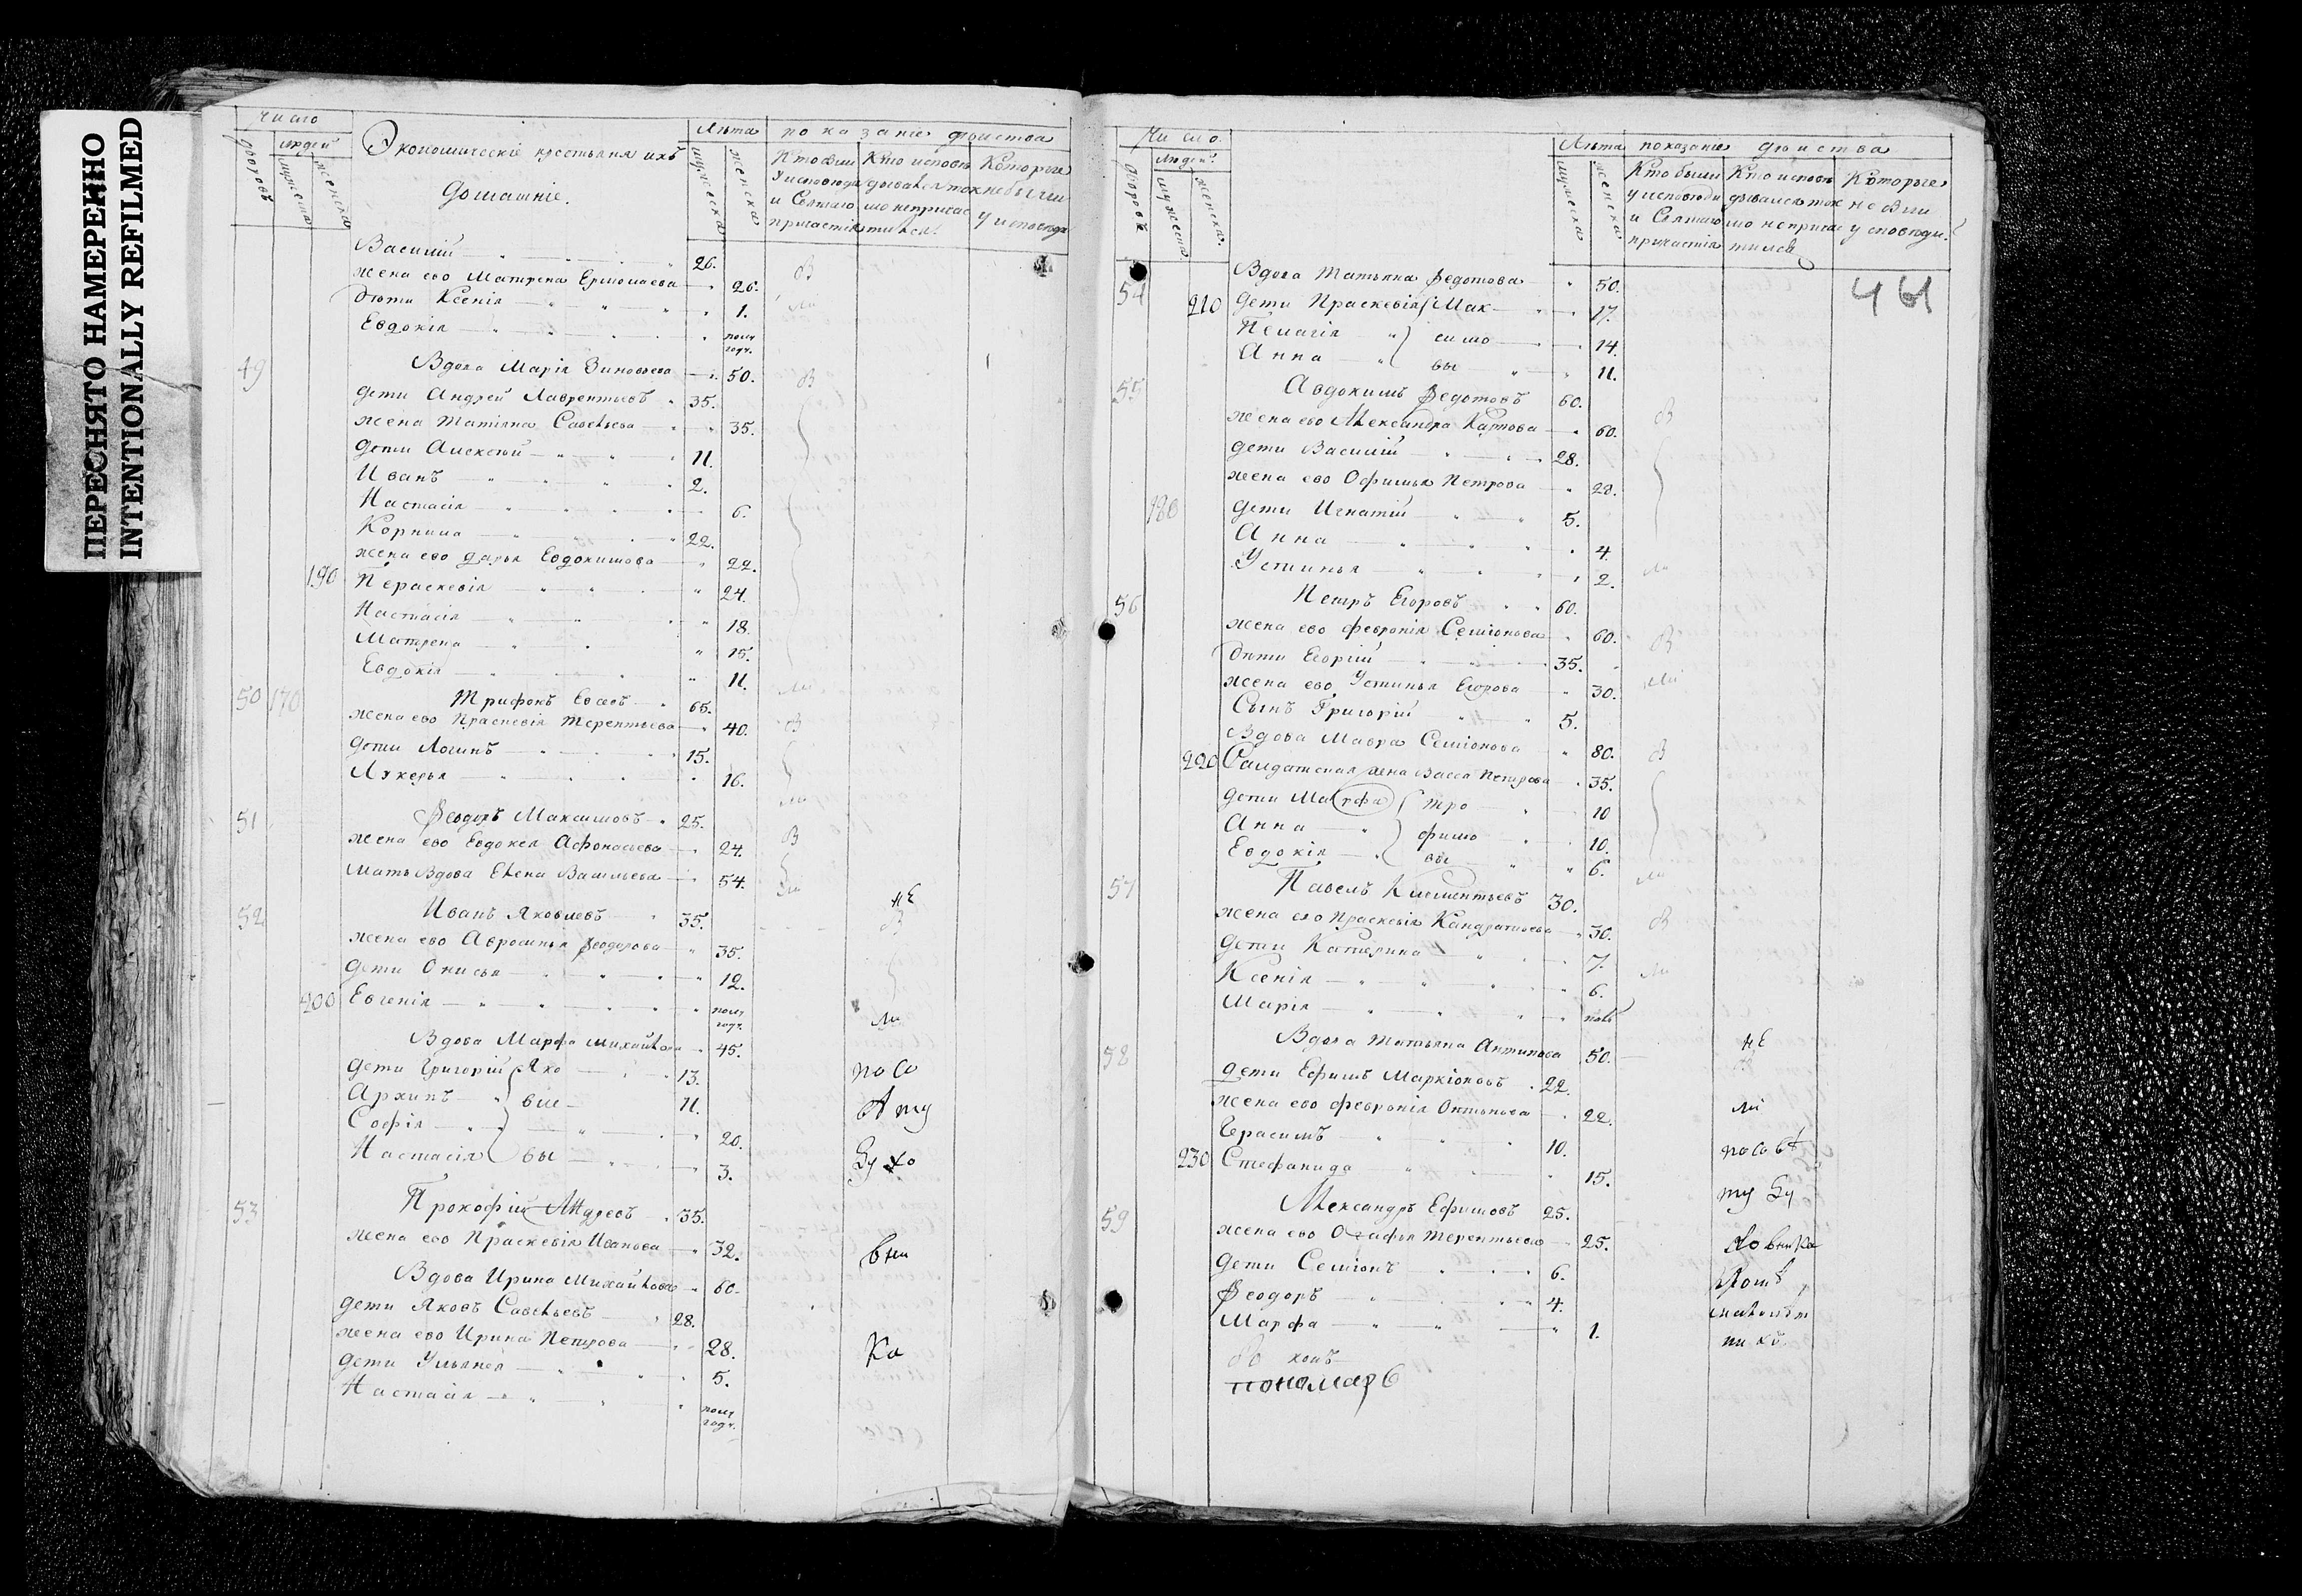 ПЕРЕСНЯТО НАМЕРЕННО
INTENTIONALLY REFILMED
Число
дворовъ
людей
мужеска
женска
Экономическiе крестьяня ихъ
домашнiе.
Лѣта
мужеска
женска
показанiе двоиства
Кто были у исповеди и Святаго причастiя
Кто исповедывался токмо непричастился
Которые небыли у исповеди
Василiй 26.
жена ево Матрена Ермолаева 26.
дѣти Ксенiя 1.
Евдокiя полугодч.
49 Вдова Марiя Зиновьева 50.
дети Андрей Лаврентьевъ 35.
жена Татiяна Савельева 35.
дети Алексѣй 11.
Иванъ 2.
Настасiя 6.
Корнила 22.
жена ево Дарья Евдокимова 22.
190 Пераскевiя 24.
Настасiя 18.
Матрена 15.
Евдокiя 11.
50 170 Трифонъ Евсевъ 65.
жена ево Праскевiя Терентьева 40.
дети Логинъ 15.
Лукерья 16.
51 Феодоръ Максимовъ 25.
жена ево Евдокея Афонасьева 24.
мать Вдова Елена Васильева 54.
52 Иванъ Яковлевъ 35.
жена ево Авросинья Феодорова 35.
дети Онисья 12.
200 Евгенiя полугодч.
Вдова Марфа Михайлова 45.
дети Григорiй Яко 13.
Архипъ вле 11.
Софiя 20.
Настасiя вы 3.
53 Прокофiй Андреевъ 35.
жена ево Праскевiя Иванова 32.
Вдова Ирина Михайлова 60.
дети Яковъ Савельевъ 28.
жена ево Ирина Петрова 28.
дети Ульянея 5.
Настасiя полугодч.
Число
дворовъ
людей
мужеска
женска
Лѣта
мужеска
женска
показанiе двоиства
Кто были у исповѣди и Святаго причастiя
Кто исповедывался токмо непричастился
Которые небыли у споведи.
461
54 Вдова Татьяна Федотова 50.
210 дети Праскевiя Мак 17.
Пелагiя симо 14.
Анна вы 11.
55 Авдокимъ Федотовъ 60.
жена ево Александра Карпова 60.
дети Василiй 28.
жена ево Офимья Петрова 28.
180 дети Игнатiй 5.
Анна 4.
Устинья 2.
56 Петръ Егоровъ 60.
жена ево Февронiя Семiонова 60.
дѣти Егорiй 35.
жена ево Устинья Егорова 30.
Сынъ Григорiй 5.
Вдова Мавра Семiонова 80.
220 Салдатская жена Васса Петрова 35.
дети Марфа Тро 10
Анна фимо 10.
Евдокiя вы 6.
57 Павелъ Клементьевъ 30.
жена ево Праскевiя Кандратьева 30.
дети Катерина 7.
Ксенiя 6.
Марiя пол
58 Вдова Татьяна Антипова 50.
дети Ефимъ Маркiоновъ 22.
жена ево Февронiя Онтонова 22.
Герасимъ 10.
230 Стефанида 15.
59 Александръ Ефимовъ 25.
жена ево Огафья Терентьева 25.
дети Семiонъ 6.
Феодоръ 4.
Марфа 1.
пономарь